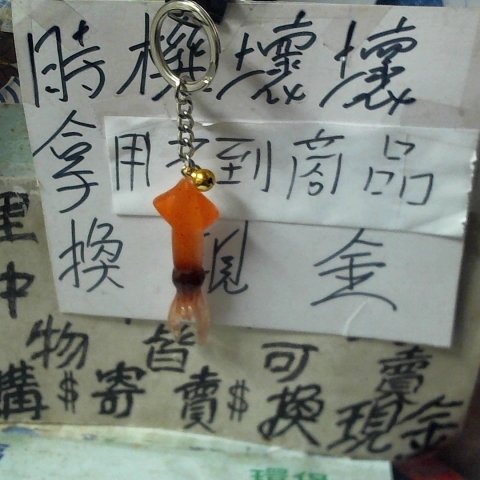 時機壞壞
拿用不到商品
換現金
里
中
物皆可賣
購$寄賣$換現金
環保